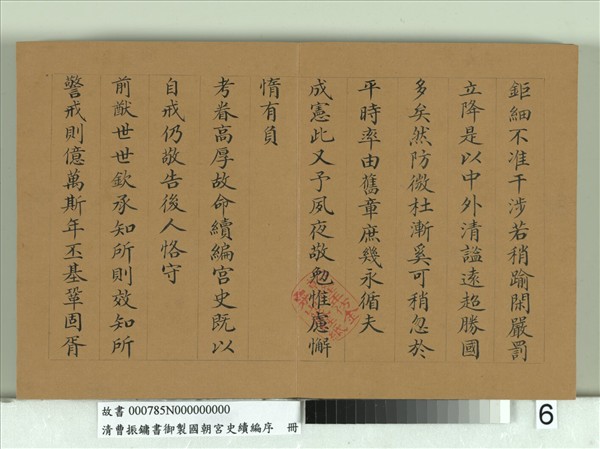 鉅細不准干涉若稍踰閑嚴罰
立降是以中外清謐遠超勝國
多矣然防微杜漸奚可稍忽於
平時率由舊章庶幾永循夫
成憲此又予夙夜敬勉惟慮懈
惰有負
考眷高厚故命續編宮史既以
自戒仍敬告後人恪守
前猷世世欽承知所則效知所
警戒則億萬斯年丕基鞏固胥
故書 000785N000000000
清曹振鏞書御製國朝宮史續編序 冊
6